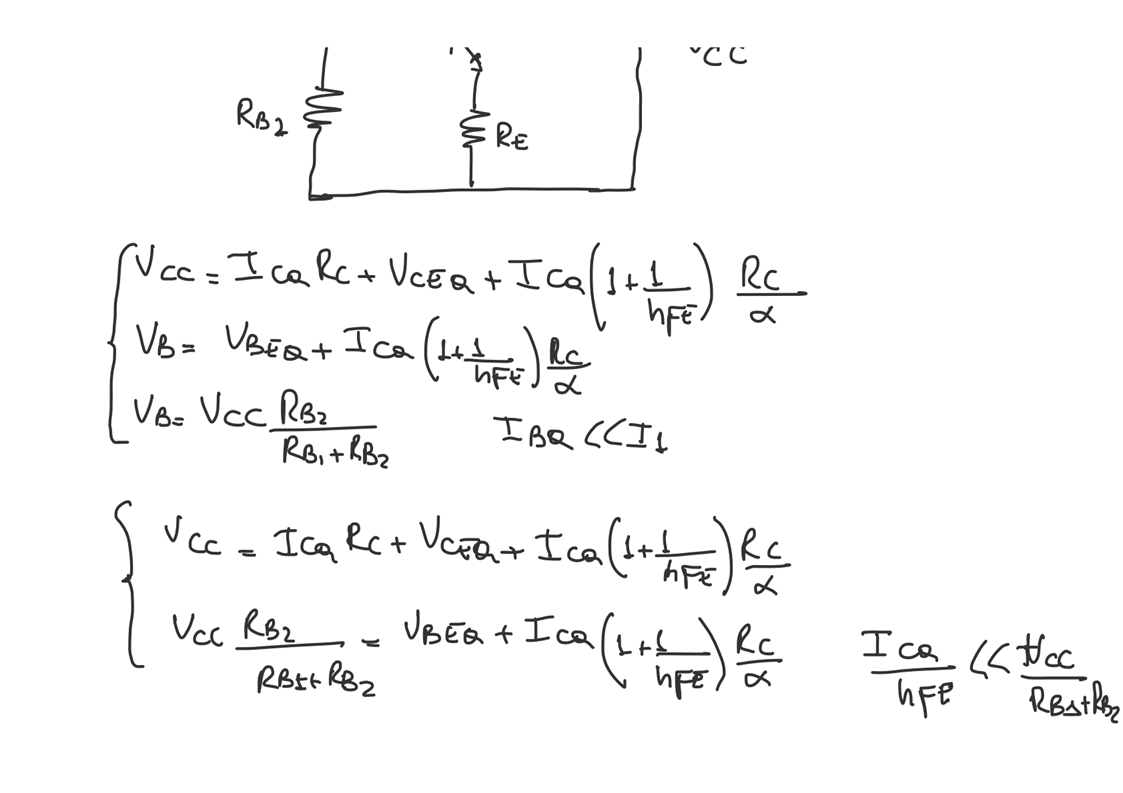 VCC
RB2
RE
VCC = ICQ RC + VCEQ + ICQ (1 + 1/hFE) RC/α
VB = VBEQ + ICQ (1 + 1/hFE) RC/α
VB = VCC RB2/(RB1 + RB2) IBQ << I1
VCC = ICQ RC + VCEQ + ICQ (1 + 1/hFE) RC/α
VCC RB2/(RB1 + RB2) = VBEQ + ICQ (1 + 1/hFE) RC/α ICQ/hFE << VCC/(RB1 + RB2)